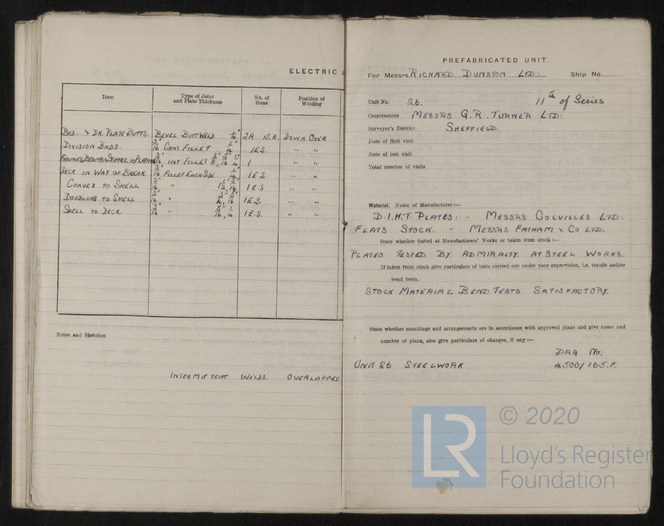 ELECTRIC
Item Type of Joint and Plate Thickness No. of Runs Position of Welding
BHD. & DK. PLATE BUTTS. BEVEL BUTT WELD 2R. B.R. DOWN OVER
DIVISION BHDS. CONT FILLET 1 E.S. " "
INT FILLET 1 " "
DECK IN WAY OF BREAK FILLET EACH SIDE 1 E.S " "
TO SHELL " 1 E.S " "
DOUBLING TO SHELL " 1 E.S. " "
SHELL TO DECK. " 1 E.S. " "
Notes and Sketches
INTERMITTENT WELDS OVERLAPPED
PREFABRICATED UNIT.
For Messrs. RICHARD DUNSTON LTD. Ship No.
Unit No. 26. 11th of Series
Constructors MESSRS G.R. TURNER LTD.
Surveyor's District SHEFFIELD.
Date of first visit
Date of last visit
Total number of visits
Material. Name of Manufacturer :—
D.I.H.T. PLATES: - MESSRS COLVILLES LTD.
FLATS STOCK. - MESSRS & CO LTD.
State whether tested at Manufacturers' Works or taken from stock :—
PLATES TESTED BY ADMIRALTY AT STEEL WORKS.
If taken from stock give particulars of tests carried out under your supervision, i.e. tensile and/or
bend tests.
STOCK MATERIAL BEND TESTS SATISFACTORY.
State whether scantlings and arrangements are in accordance with approved plans and give name and
number of plans, also give particulars of changes, if any :—
DRG NO.
UNIT 26 STEELWORK 4500/105.F.
© 2020
LR
Lloyd's Register
Foundation